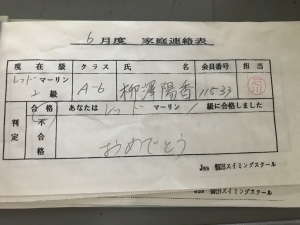 6月度 家庭連絡表
現在級 クラス 氏名 会員番号 担当
レッドマーリン 2級 A-6 柳澤陽香 11533
判定 合格 不合格 あなたは レッドマーリン 1級に合格しました
おめでとう
Jss スイミングスクール
Jss スイミングスクール